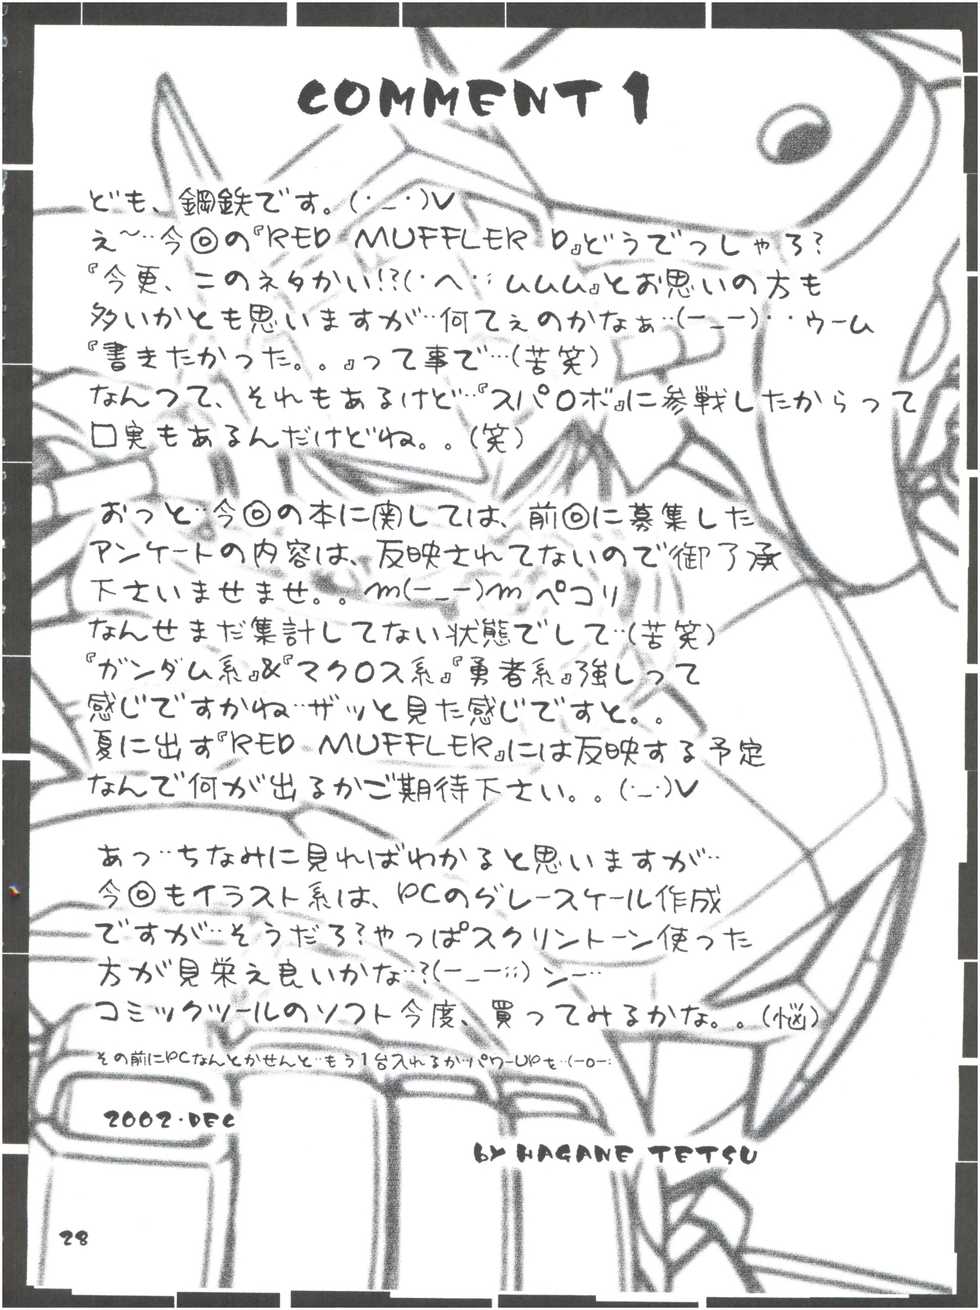 COMMENT 1
ども、鋼鉄です。(・_・)V
え〜‥今回の『RED MUFFLER D』どうでっしゃろ?
『今更、このネタかい!?(・へ・;ムムム』とお思いの方も
多いかとも思いますが‥何てぇのかなぁ‥(ー_ー)‥ウーム
『書きたかった。。』って事で‥(苦笑)
なんつて、それもあるけど‥『スパロボ』に参戦したからって
口実もあるんだけどね。。(笑)
おっと‥今回の本に関しては、前回に募集した
アンケートの内容は、反映されてないので御了承
下さいませませ。。m(ー_ー)m ペコリ
なんせまだ集計してない状態でして‥(苦笑)
『ガンダム系』&『マクロス系』『勇者系』強しって
感じですかね‥ザッと見た感じですと。。
夏に出す『RED MUFFLER』には反映する予定
なんで何が出るかご期待下さい。。(・_・)V
あっ‥ちなみに見ればわかると思いますが‥
今回もイラスト系は、PCのグレースケール作成
ですが‥そうだろ?やっぱスクリントーン使った
方が見栄え良いかな‥?(ー_ー;;)ンー‥
コミックツールのソフト今度、買ってみるかな。。(悩)
その前にPCなんとかせんと‥もう1台入れるか‥パワーUPを‥(ーoー;
2002・DEC
BY HAGANE TETSU
28